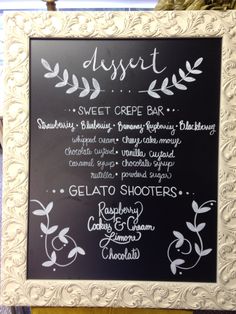 dessert
• SWEET CREPE BAR •
Strawberries • Blueberries • Bananas • Raspberries • Blackberries
whipped cream •
chocolate custard • vanilla custard
caramel syrup • chocolate syrup
nutella • powdered sugar
• GELATO SHOOTERS •
Raspberry
Cookies & Cream
Limone
Chocolate